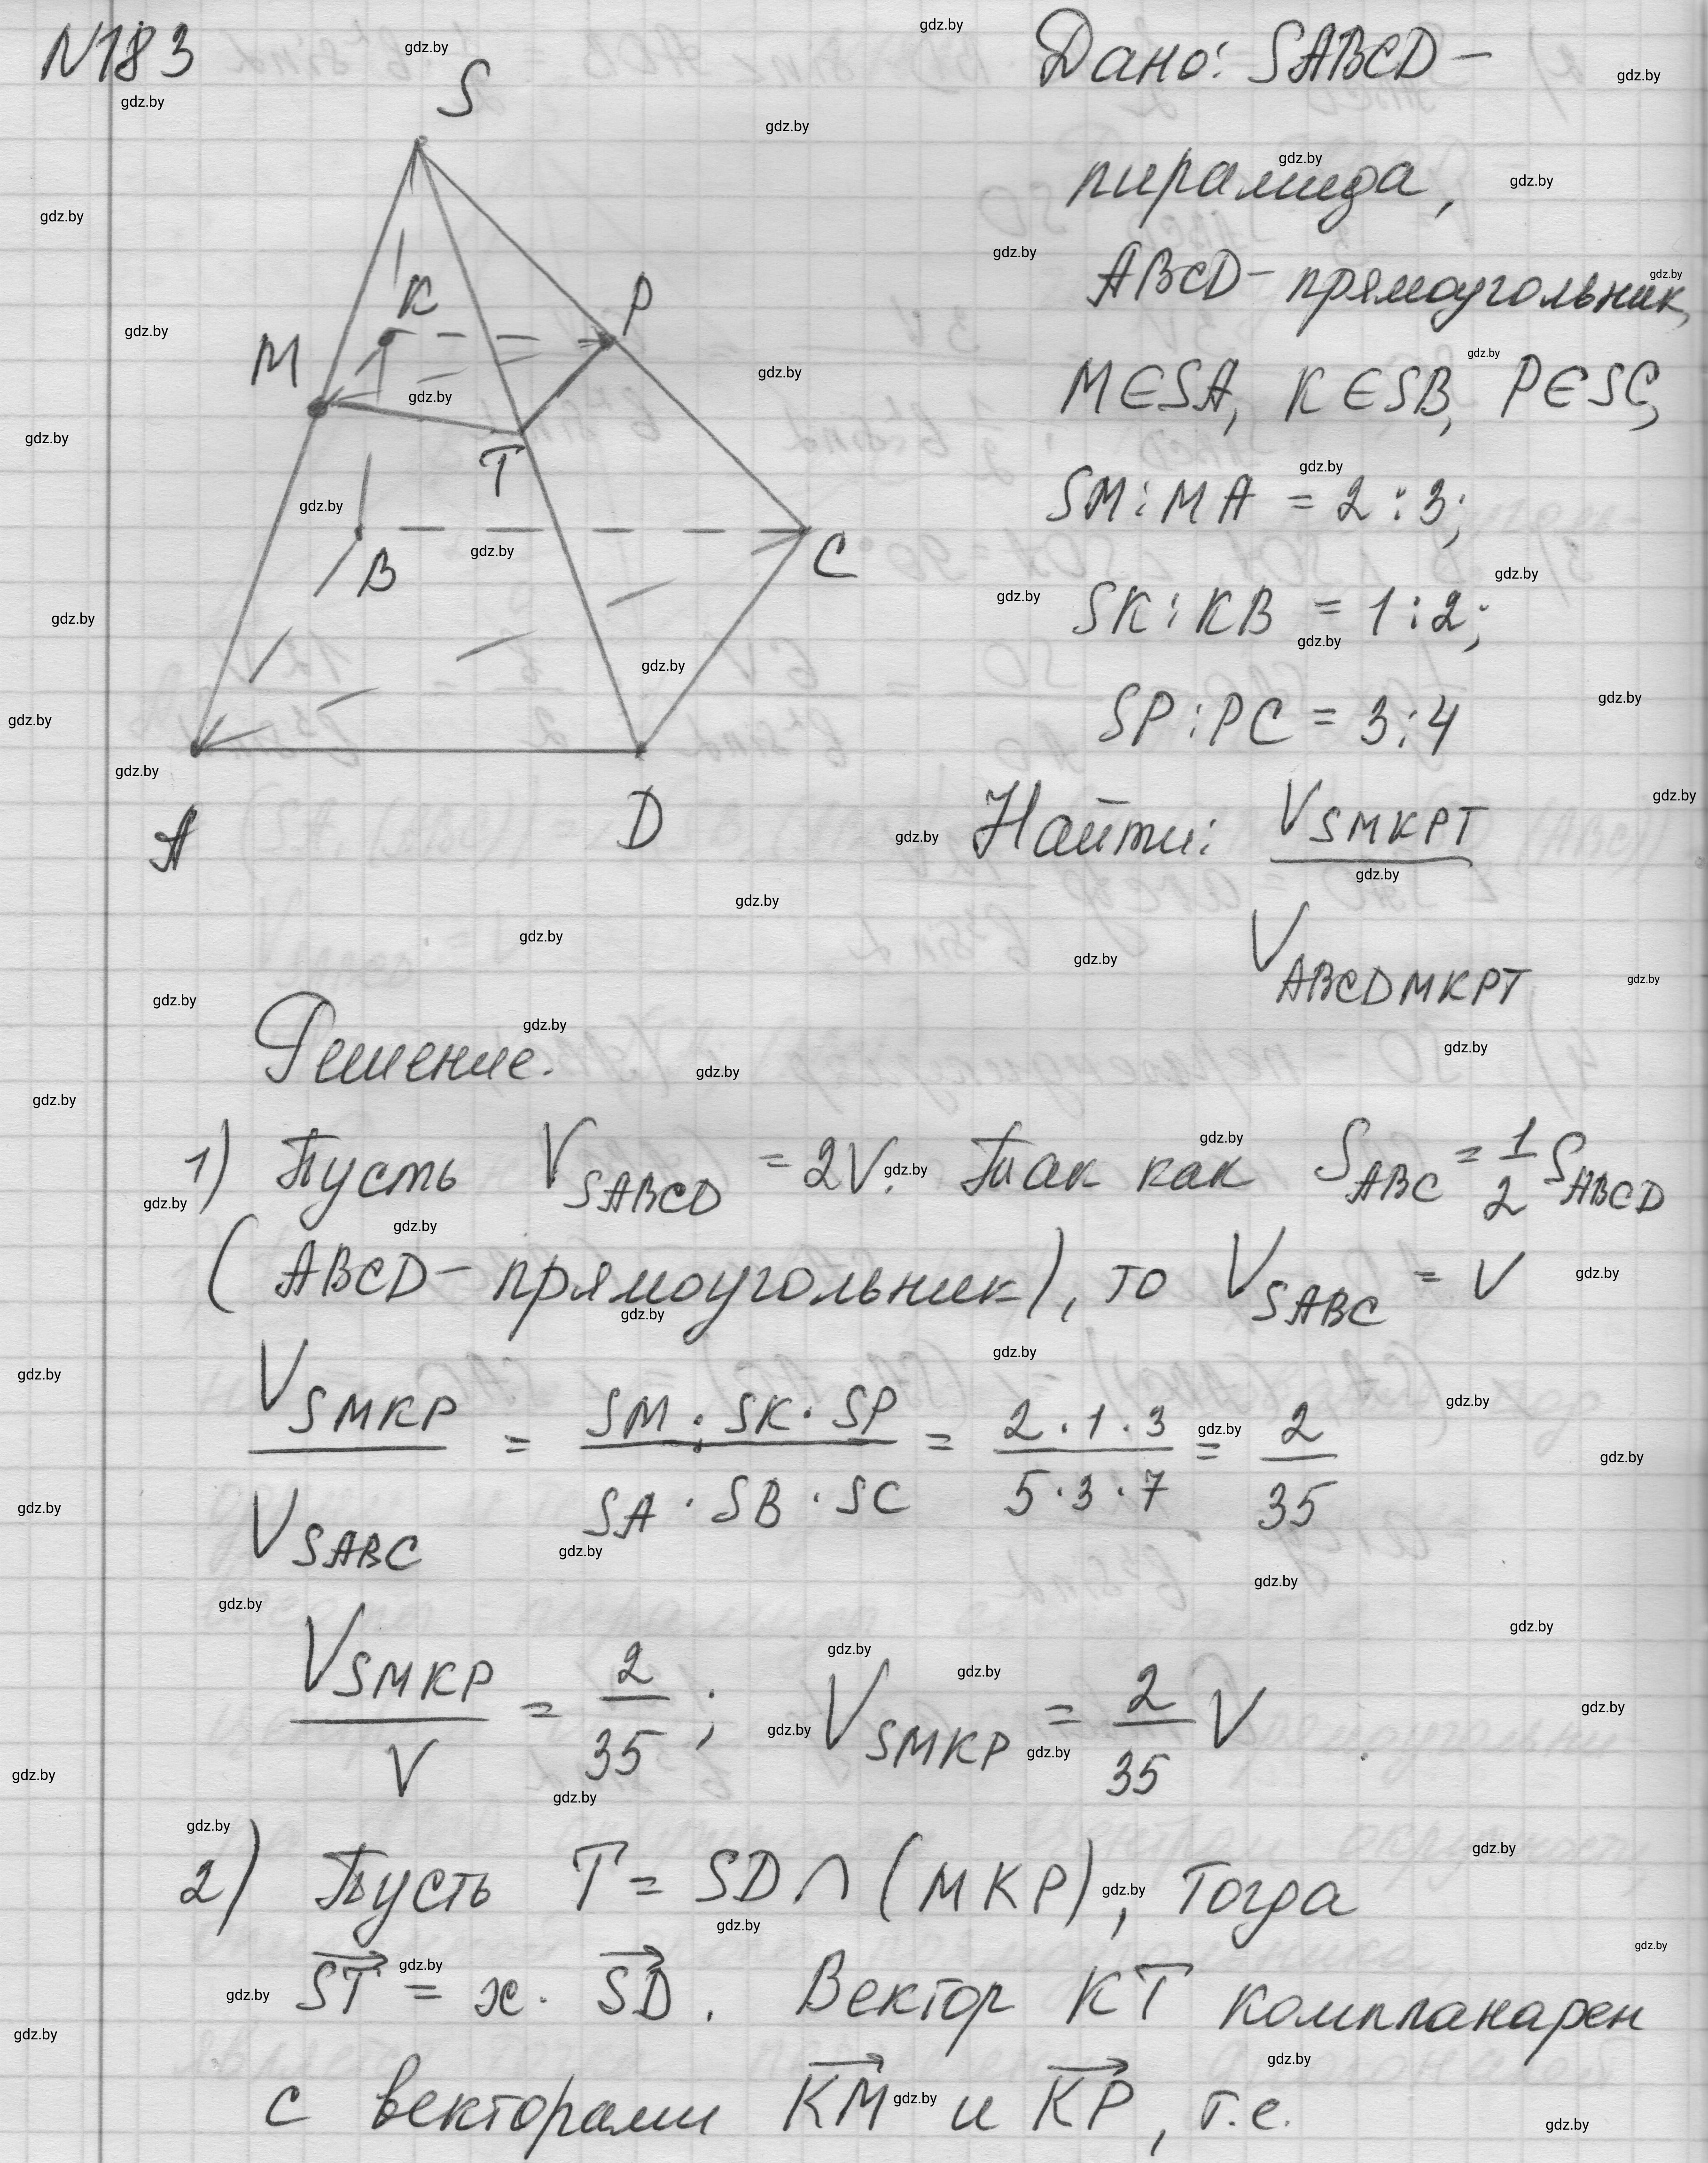 N183
S
K
P
M
T
B
C
A
D
Дано: SABCD –
пирамида,
ABCD – прямоугольник,
M∈SA, K∈SB, P∈SC,
SM : MA = 2 : 3;
SK : KB = 1 : 2;
SP : PC = 3 : 4
Найти: V_SMKPT / V_ABCDMKPT
Решение.
1) Пусть V_SABCD = 2V. Так как S_ABC = 1/2 S_ABCD
(ABCD – прямоугольник), то V_SABC = V
V_SMKP / V_SABC = SM · SK · SP / SA · SB · SC = 2 · 1 · 3 / 5 · 3 · 7 = 2/35
V_SMKP / V = 2/35 ; V_SMKP = 2/35 V
2) Пусть T = SD ∩ (MKP), тогда
ST = x · SD. Вектор KT компланарен
с векторами KM и KP, т.е.
gdz.by